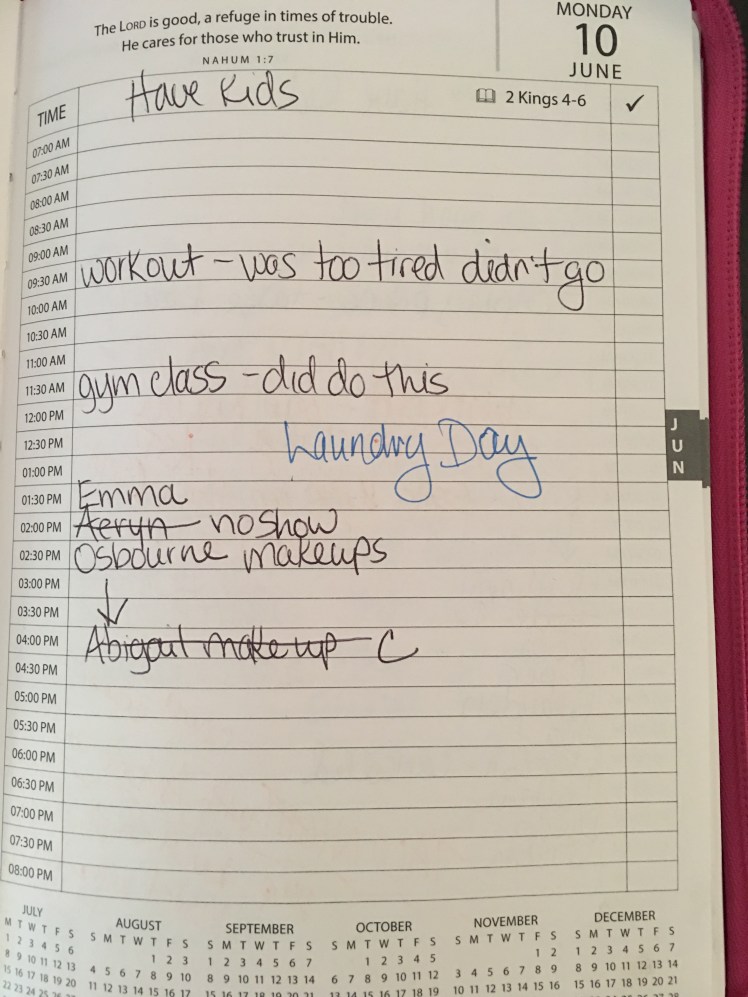 The LORD is good, a refuge in times of trouble.
He cares for those who trust in Him.
NAHUM 1:7
MONDAY
10
JUNE
TIME Have Kids 2 Kings 4-6 ✓
07:00 AM
07:30 AM
08:00 AM
08:30 AM
09:00 AM
09:30 AM workout - was too tired didn't go
10:00 AM
10:30 AM
11:00 AM
11:30 AM gym class - did do this
12:00 PM
12:30 PM Laundry Day
01:00 PM
01:30 PM Emma
02:00 PM Aeryn - no show
02:30 PM Osbourne makeups
03:00 PM
03:30 PM ↓
04:00 PM Abigail make up - C
04:30 PM
05:00 PM
05:30 PM
06:00 PM
06:30 PM
07:00 PM
07:30 PM
08:00 PM
JUN
JULY AUGUST SEPTEMBER OCTOBER NOVEMBER DECEMBER
M T W T F S S M T W T F S S M T W T F S S M T W T F S S M T W T F S S M T W T F S
1 2 3 4 5 6 1 2 3 1 2 3 4 5 6 7 1 2 3 4 5 1 2 1 2 3 4 5 6 7
8 9 10 11 12 13 4 5 6 7 8 9 10 8 9 10 11 12 13 14 6 7 8 9 10 11 12 3 4 5 6 7 8 9 8 9 10 11 12 13 14
15 16 17 18 19 20 11 12 13 14 15 16 17 15 16 17 18 19 20 21 13 14 15 16 17 18 19 10 11 12 13 14 15 16 15 16 17 18 19 20 21
22 23 24 25 26 27